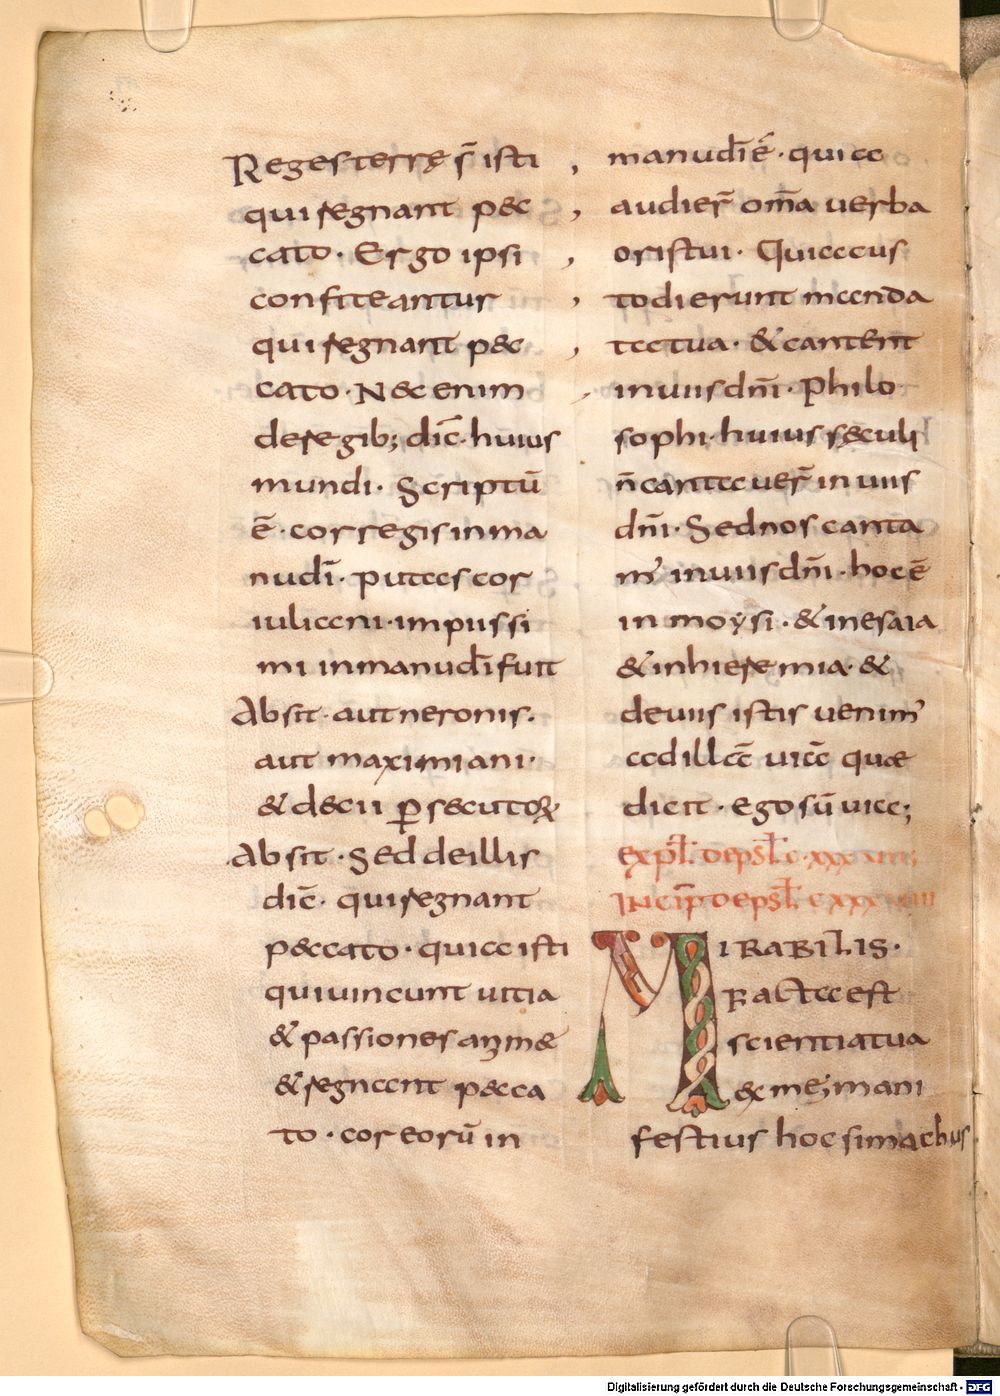 Regesterrę s̄ isti
qui regnant pec
cato · Ergo ipsi
confiteantur
qui regnant pec
cato · Nec enim
deregib; dic̄ · huius
mundi · Scriptū
ē · cor regis inma
nudī · putas cor
iuliani · impiissi
mi inmanudī fuit
Absit · aut neronis ·
aut maximiani ·
& decii p̱secutoꝝ
Absit · Sed deillis
dic̄ · qui regnant
peccato · quia isti
quiuincunt uitia
& passiones animæ
& regnant pecca
to · cor eorū in
manudī ē · quia
audier̄ om̄a uerba
oris tui · Quia cus
todierunt manda
ta tua · & cantent
inuiis dn̄i · Philo
sophi · huius sęculi
n̄ cantauer̄ in uiis
dn̄i · Sed nos canta
m' inuiis dn̄i · hoc ē
in moysi · & inesaia
& inhieremia · &
deuiis istis uenim'
adillā uiā quae
dicit · Ego sū uia;
expl̄ de psl̄ c · xxxvii
Incip̄ de psl̄ cxxxviii
MIRABILIS ·
Facta est
scientia tua
ex me; mani
festius hoc simachus
Digitalisierung gefördert durch die Deutsche Forschungsgemeinschaft - DFG